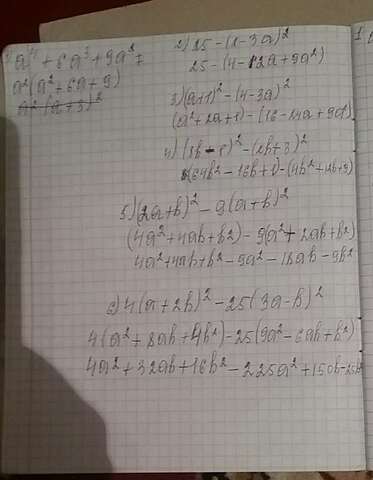 a⁴ + 6a³ + 9a² =
a²(a² + 6a + 9)
a²(a + 3)²
2) 25 - (2 - 3a)²
25 - (4 - 12a + 9a²)
3) (a+1)² - (4 - 3a)²
(a² + 2a + 1) - (16 - 24a + 9a²)
4) (8b - 1)² - (2b + 3)²
(64b² - 16b + 1) - (4b² + 12b + 9)
5) (2a + b)² - 9(a + b)²
(4a² + 4ab + b²) - 9(a² + 2ab + b²)
4a² + 4ab + b² - 9a² - 18ab - 9b²
6) 4(a + 2b)² - 25(3a - b)²
4(a² + 8ab + 4b²) - 25(9a² - 6ab + b²)
4a² + 32ab + 16b² - 225a² + 150b - 25b²